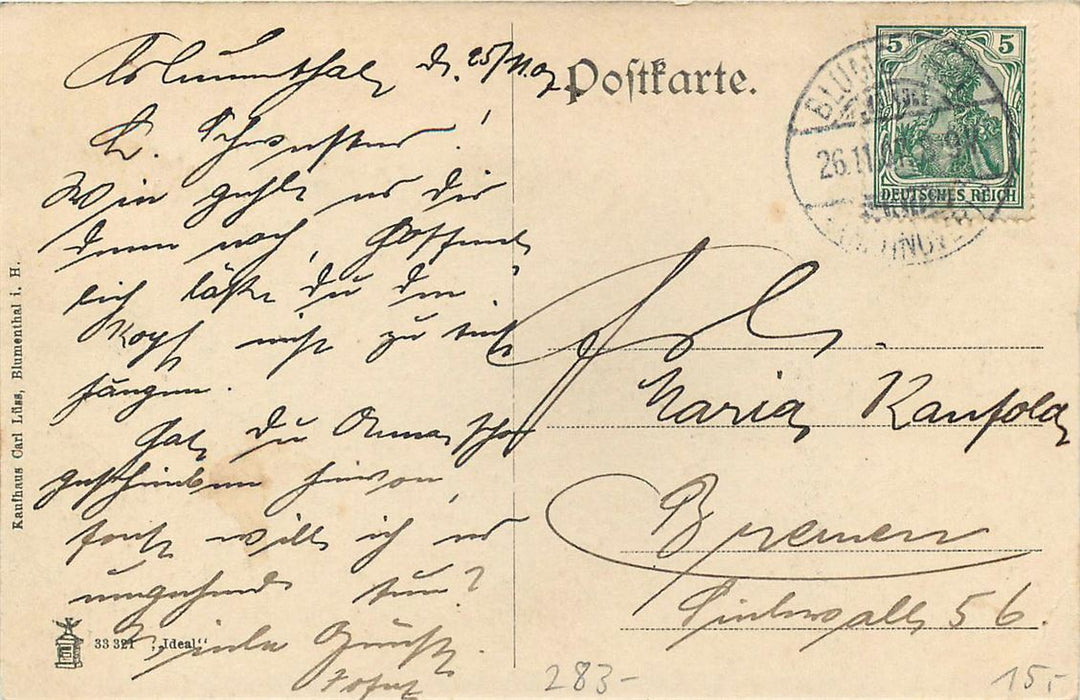 Blumenthal, d. 25/11.07
L. Schwester!
Wie geht es dir
denn noch, hoffent
lich läßt du den
Kopf nicht zu tief
hängen.
Hat du Anna schon
geschrieben hievon,
sonst will ich es
umgehend tun?
Viele Grüße
Josef
Postkarte.
5 5
DEUTSCHES REICH
26.11
(HANNOVER)
Frl.
Maria Kaufold
Bremen
56.
Kaufhaus Carl Lüss, Blumenthal i. H.
33 321 "Ideal"
283-
15,-